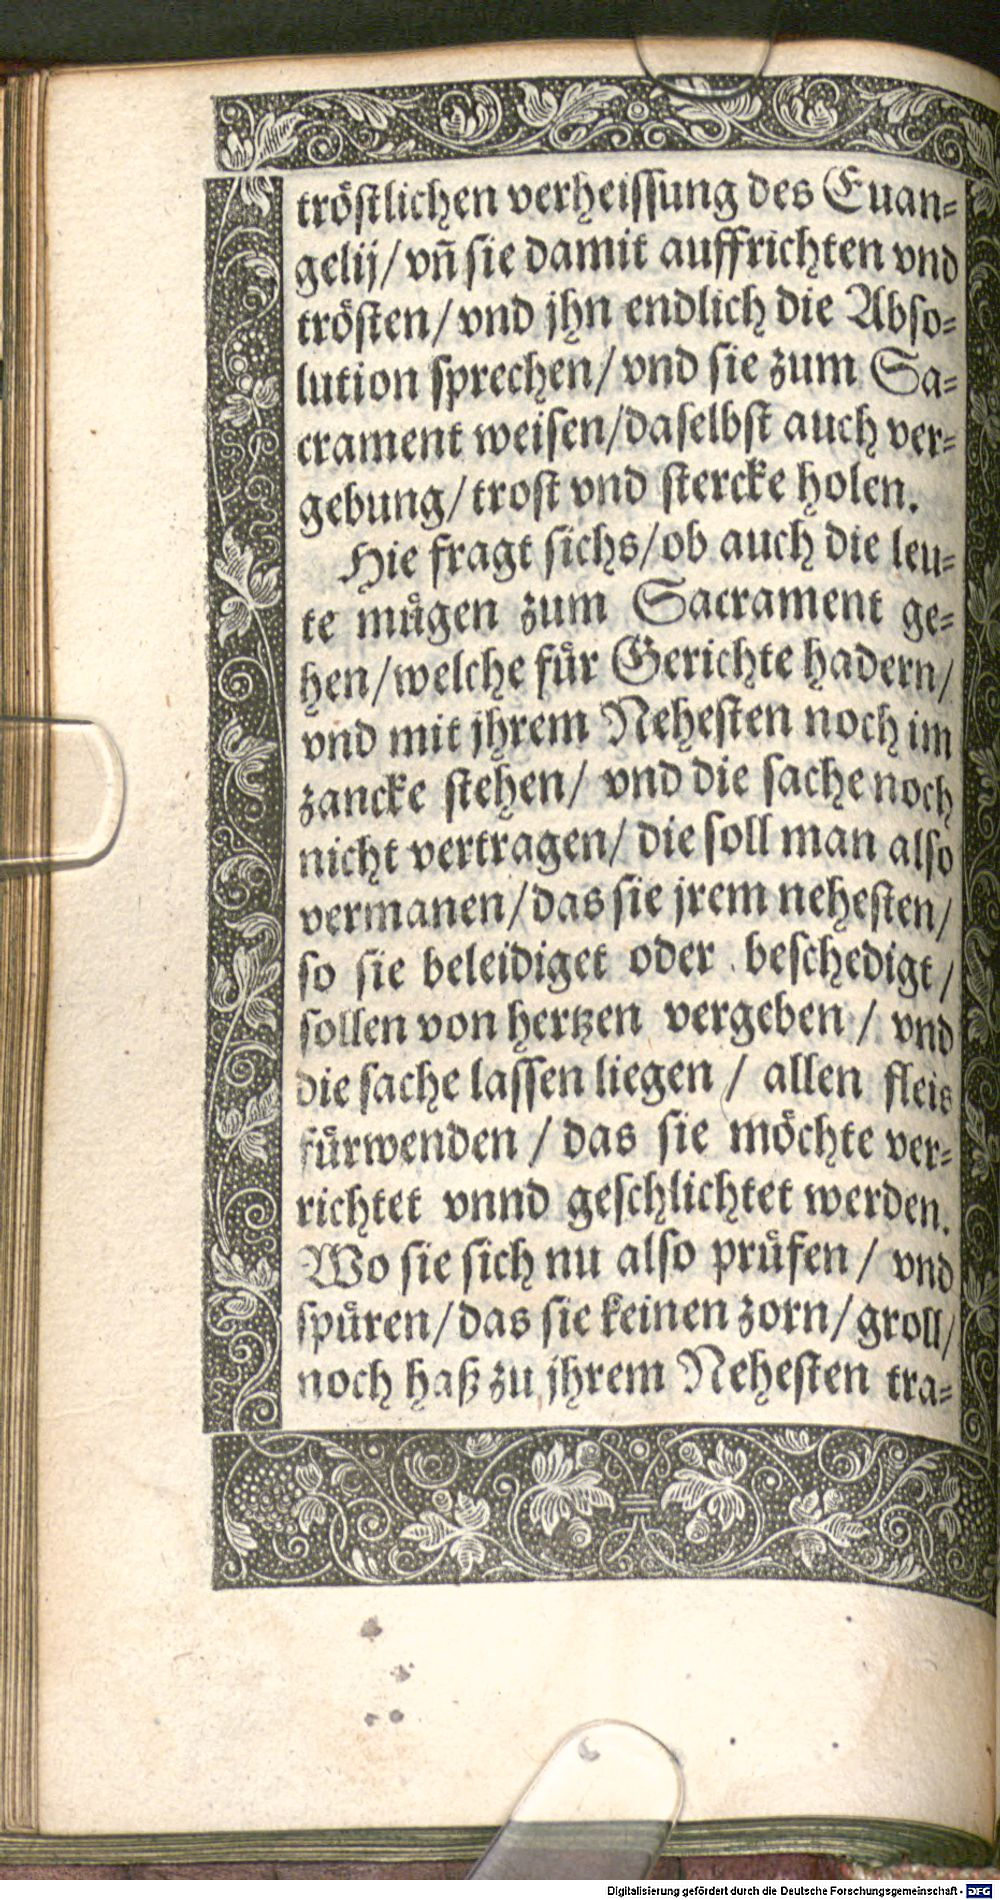 tröstlichen verheissung des Euan-
gelij/ vñ sie damit auffrichten vnd
trösten/ vnd jhn endlich die Abso-
lution sprechen/ vnd sie zum Sa-
crament weisen/ daselbst auch ver-
gebung/ trost vnd stercke holen.
Hie fragt sichs/ ob auch die leu-
te mügen zum Sacrament ge-
hen/ welche für Gerichte hadern/
vnd mit jhrem Nehesten noch im
zancke stehen/ vnd die sache noch
nicht vertragen/ die soll man also
vermanen/ das sie jrem nehesten/
so sie beleidiget oder beschedigt/
sollen von hertzen vergeben/ vnd
die sache lassen liegen/ allen fleis
fürwenden/ das sie möchte ver-
richtet vnnd geschlichtet werden.
Wo sie sich nu also prüfen/ vnd
spüren/ das sie keinen zorn/ groll/
noch haß zu jhrem Nehesten tra-
Digitalisierung gefördert durch die Deutsche Forschungsgemeinschaft - DFG